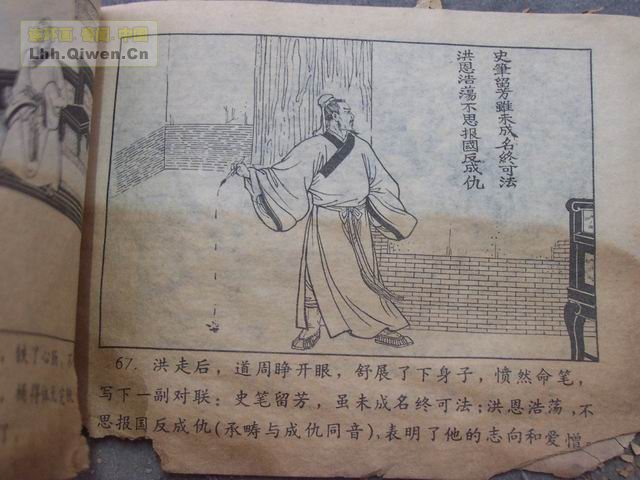 连环画·看图·中国
Lhh.Qiwen.Cn
史筆留芳雖未成名終可法
洪恩浩蕩不思报國反成仇
67. 洪走后，道周睁开眼，舒展了下身子，愤然命笔，
写下一副对联：史笔留芳，虽未成名终可法；洪恩浩荡，不
思报国反成仇(承畴与成仇同音)，表明了他的志向和爱憎。